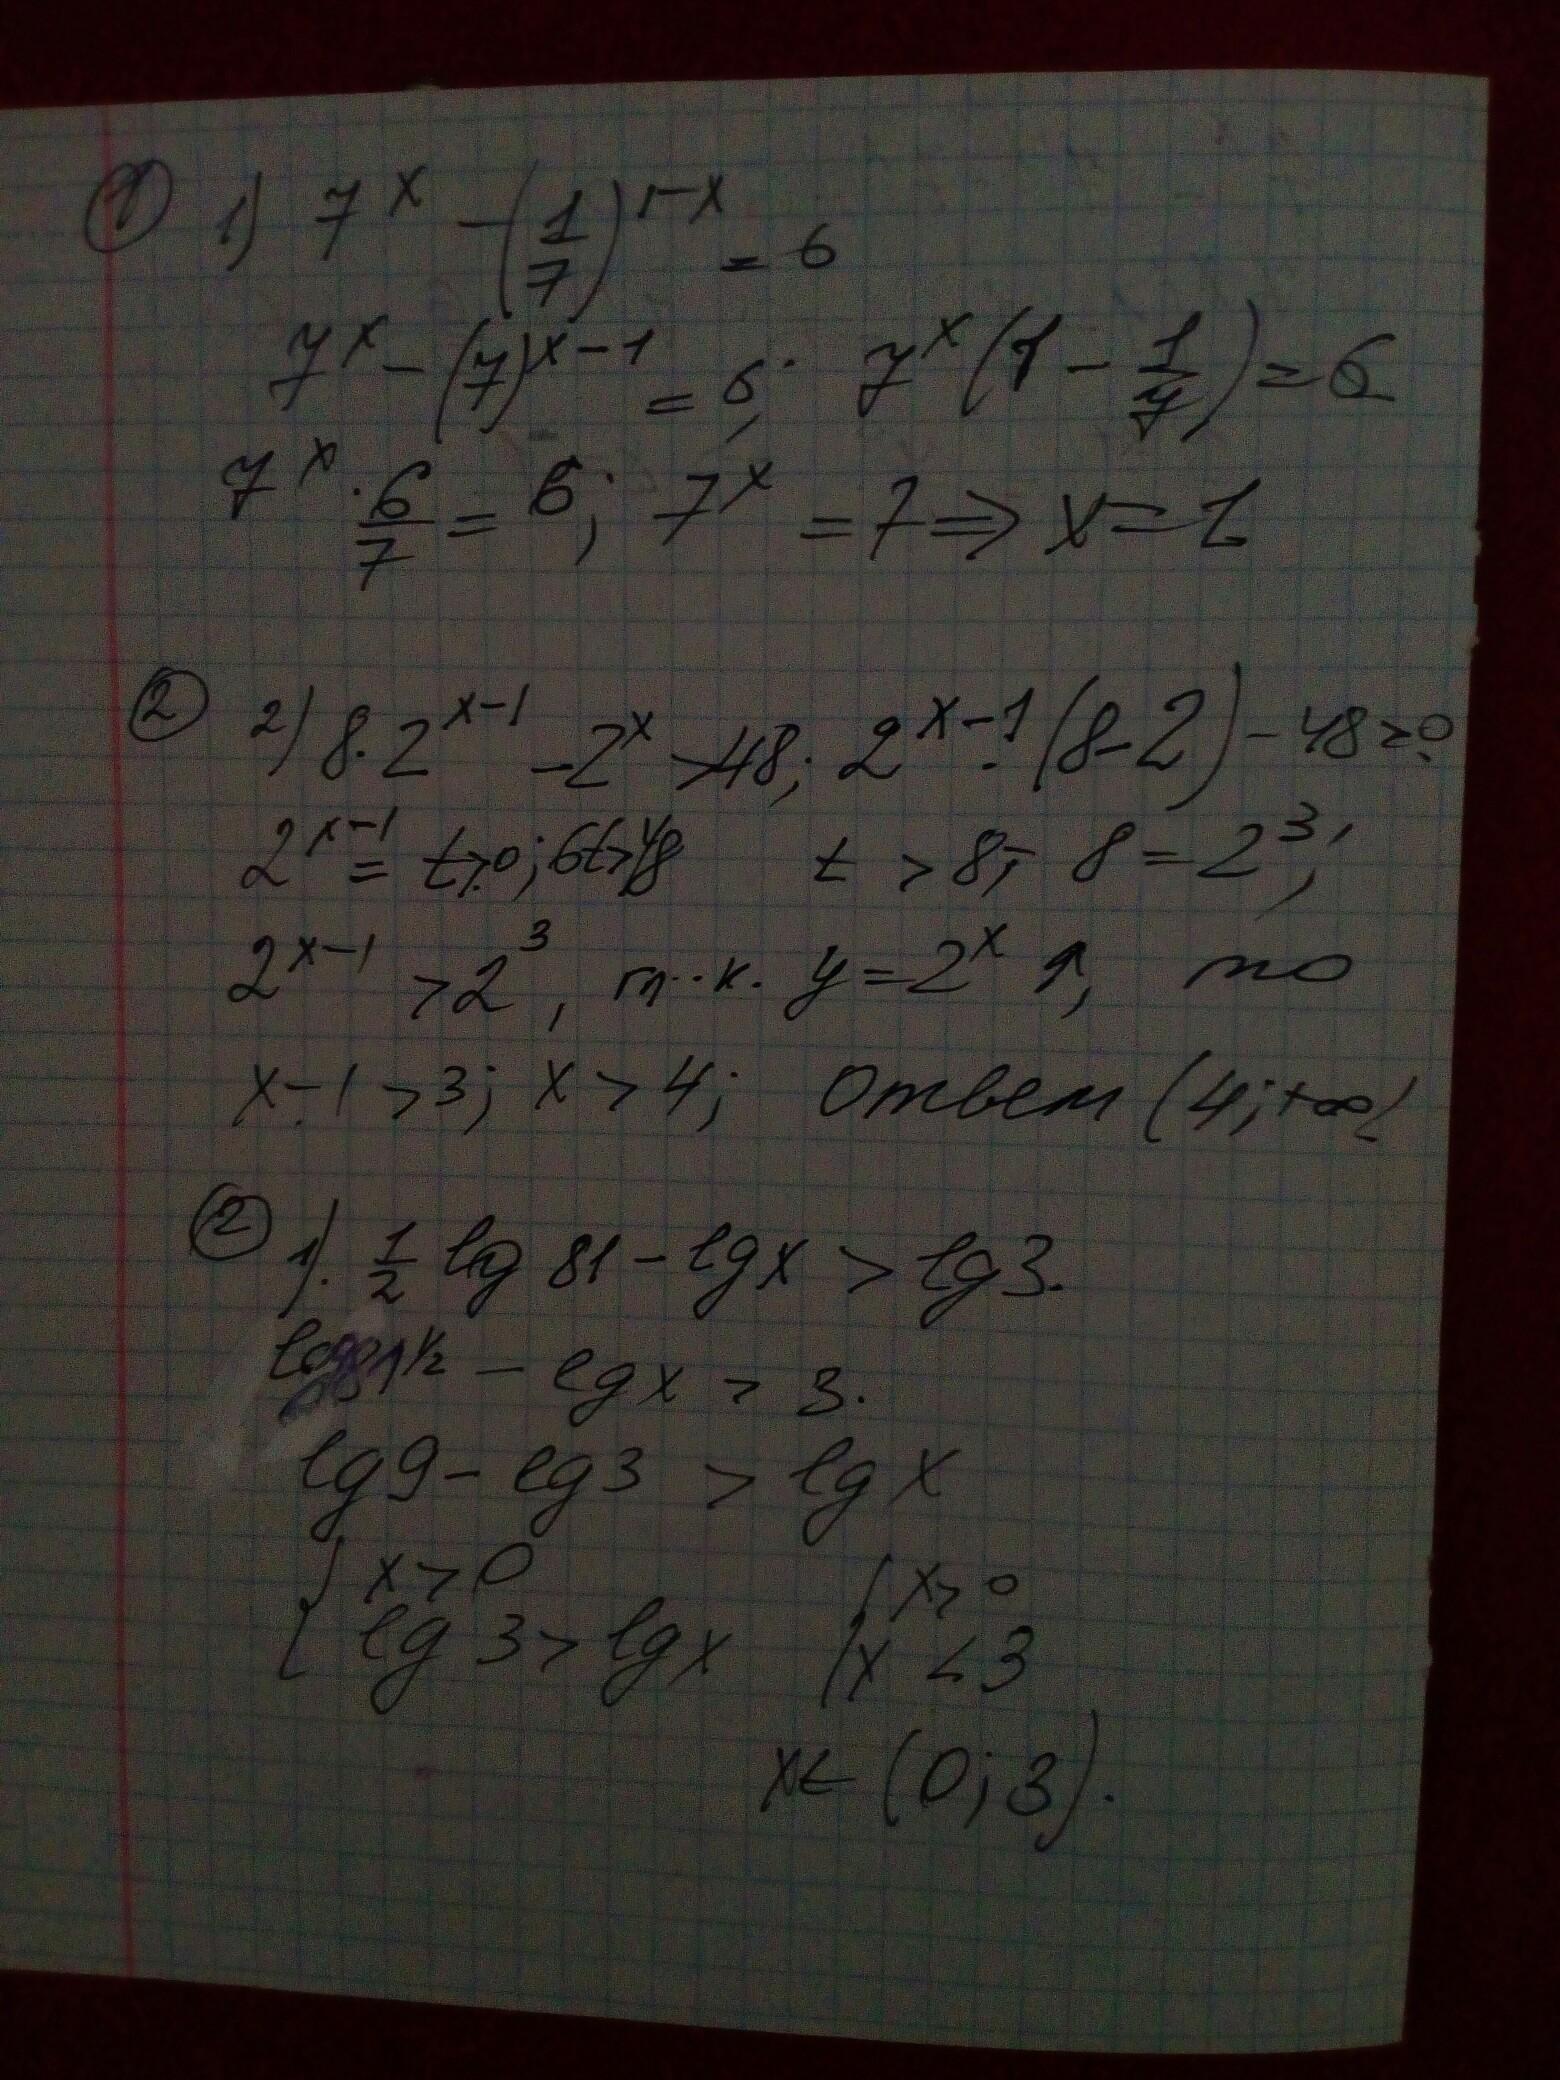 ① 1) 7^x - (1/7)^(1-x) = 6
7^x - (7)^(x-1) = 6; 7^x (1 - 1/7) = 6
7^x · 6/7 = 6; 7^x = 7 ⇒ x = 1
② 2) 8·2^(x-1) - 2^x > 48; 2^(x-1) · (8-2) - 48 > 0
2^(x-1) = t > 0; 6t > 48 t > 8; 8 = 2^3;
2^(x-1) > 2^3, т.к. y = 2^x ↑, то
x - 1 > 3; x > 4; Ответ (4; +∞)
② 1). 1/2 lg 81 - lg x > lg 3.
81^(1/2) - lg x > 3.
lg 9 - lg 3 > lg x
{ x > 0 { x > 0
{ lg 3 > lg x { x < 3
x ∈ (0; 3).